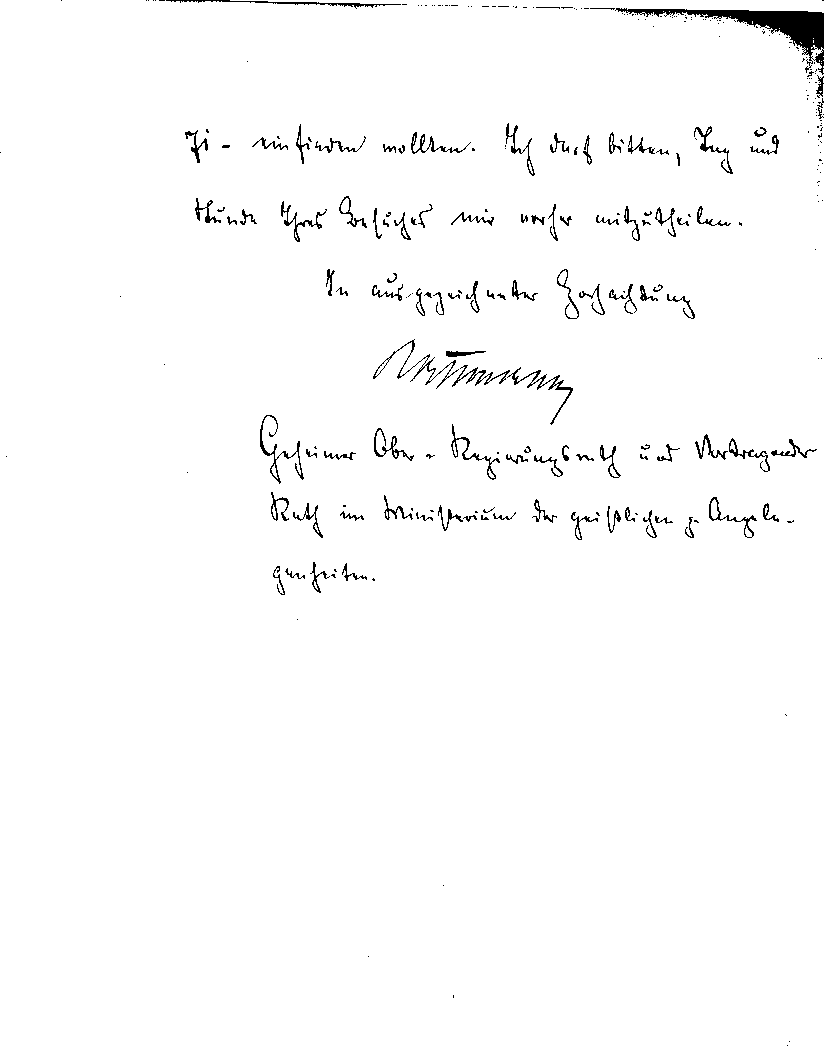 71 - einfinden wollten. Ich darf bitten, Tag und
Stunde Ihres Besuches mir vorher mitzutheilen.
In ausgezeichneter Hochachtung
Geheimer Ober-Regierungsrath und Vortragender
Rath im Ministerium der geistlichen p. Angele-
genheiten.